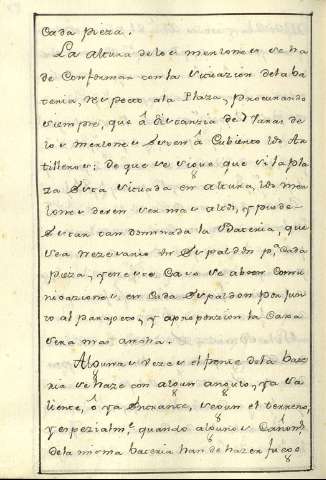 Cada pieza.
La altura de los merlones se ha
de Conformar con la situazion dela ba
teria, respecto ala Plaza, procurando
siempre, que â distanzia de 7 Varas de
los merlones esten â Cubierto los Ar
tilleros: de que se sigue que si la pla
za está situada en altura, los mer
lones deven ser mas altos, y puede
estar tan dominada la Bateria, que
sea nezesario Espaldon p.ª Cada
pieza, y en este Caso se abren Comu
nicaziones en Cada Espaldon por Jun
to al parapeto, y aproporzion la Caxa
sera mas ancha.
Algunas vezes el frente dela bate
ria se haze con algun angulo, ya sa
liente, ô ya Entrante, segun el terreno,
y espezialm.te quando algunos Cañon.s
dela misma bateria han de hazer fuego